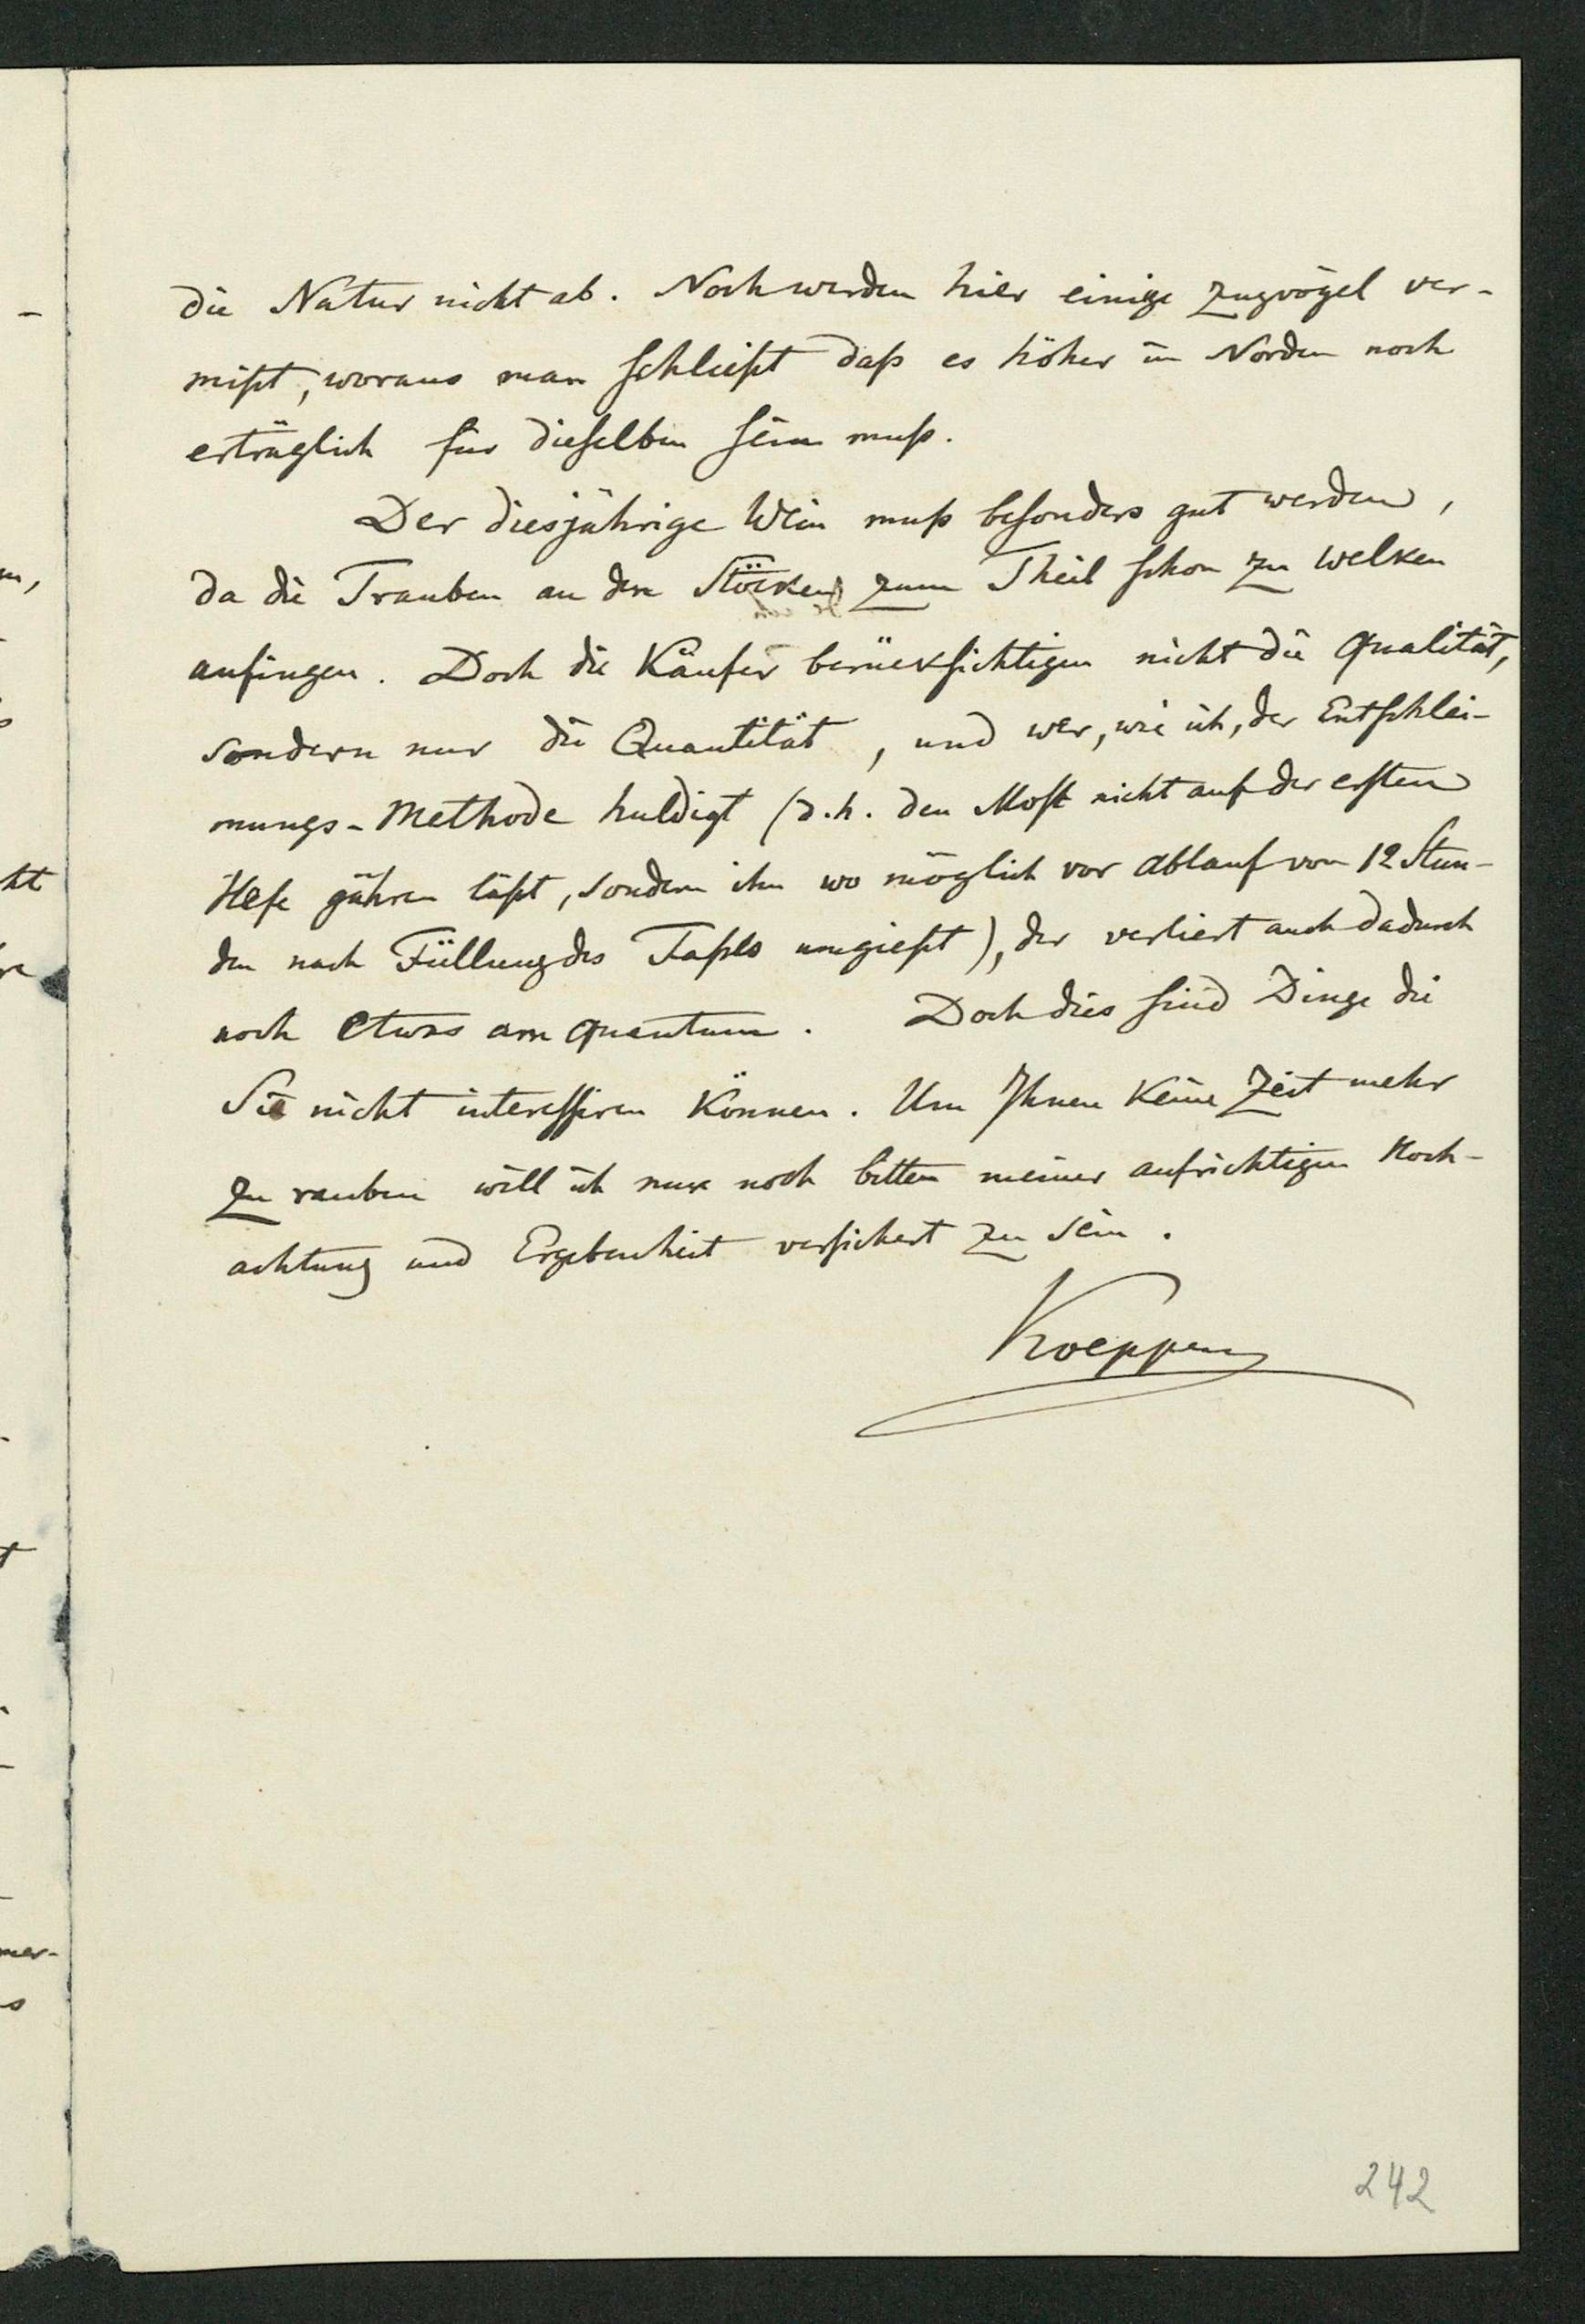 die Natur nicht ab. Noch werden hier einige Zugvögel ver-
mißt, woraus man schließt daß es höher im Norden noch
erträglich für dieselben sein muß.
Der diesjährige Wein muß besonders gut werden,
da die Trauben an den Stöcken zum Theil schon zu welken
anfingen. Doch die Käufer berücksichtigen nicht die Qualität,
sondern nur die Quantität, und wer, wie ich, der Entschlei-
mungs-Methode huldigt (d.h. den Most nicht auf der ersten
Hefe gähren läßt, sondern ihn wo möglich vor Ablauf von 12 Stun-
den nach Füllung des Faßes umgießt), der verliert auch dadurch
noch etwas am Quantum. Doch dies sind Dinge die
Sie nicht interessiren können. Um Ihnen keine Zeit mehr
zu rauben will ich nur noch bitten meiner aufrichtigen Hoch-
achtung und Ergebenheit versichert zu sein.
Koeppen
242